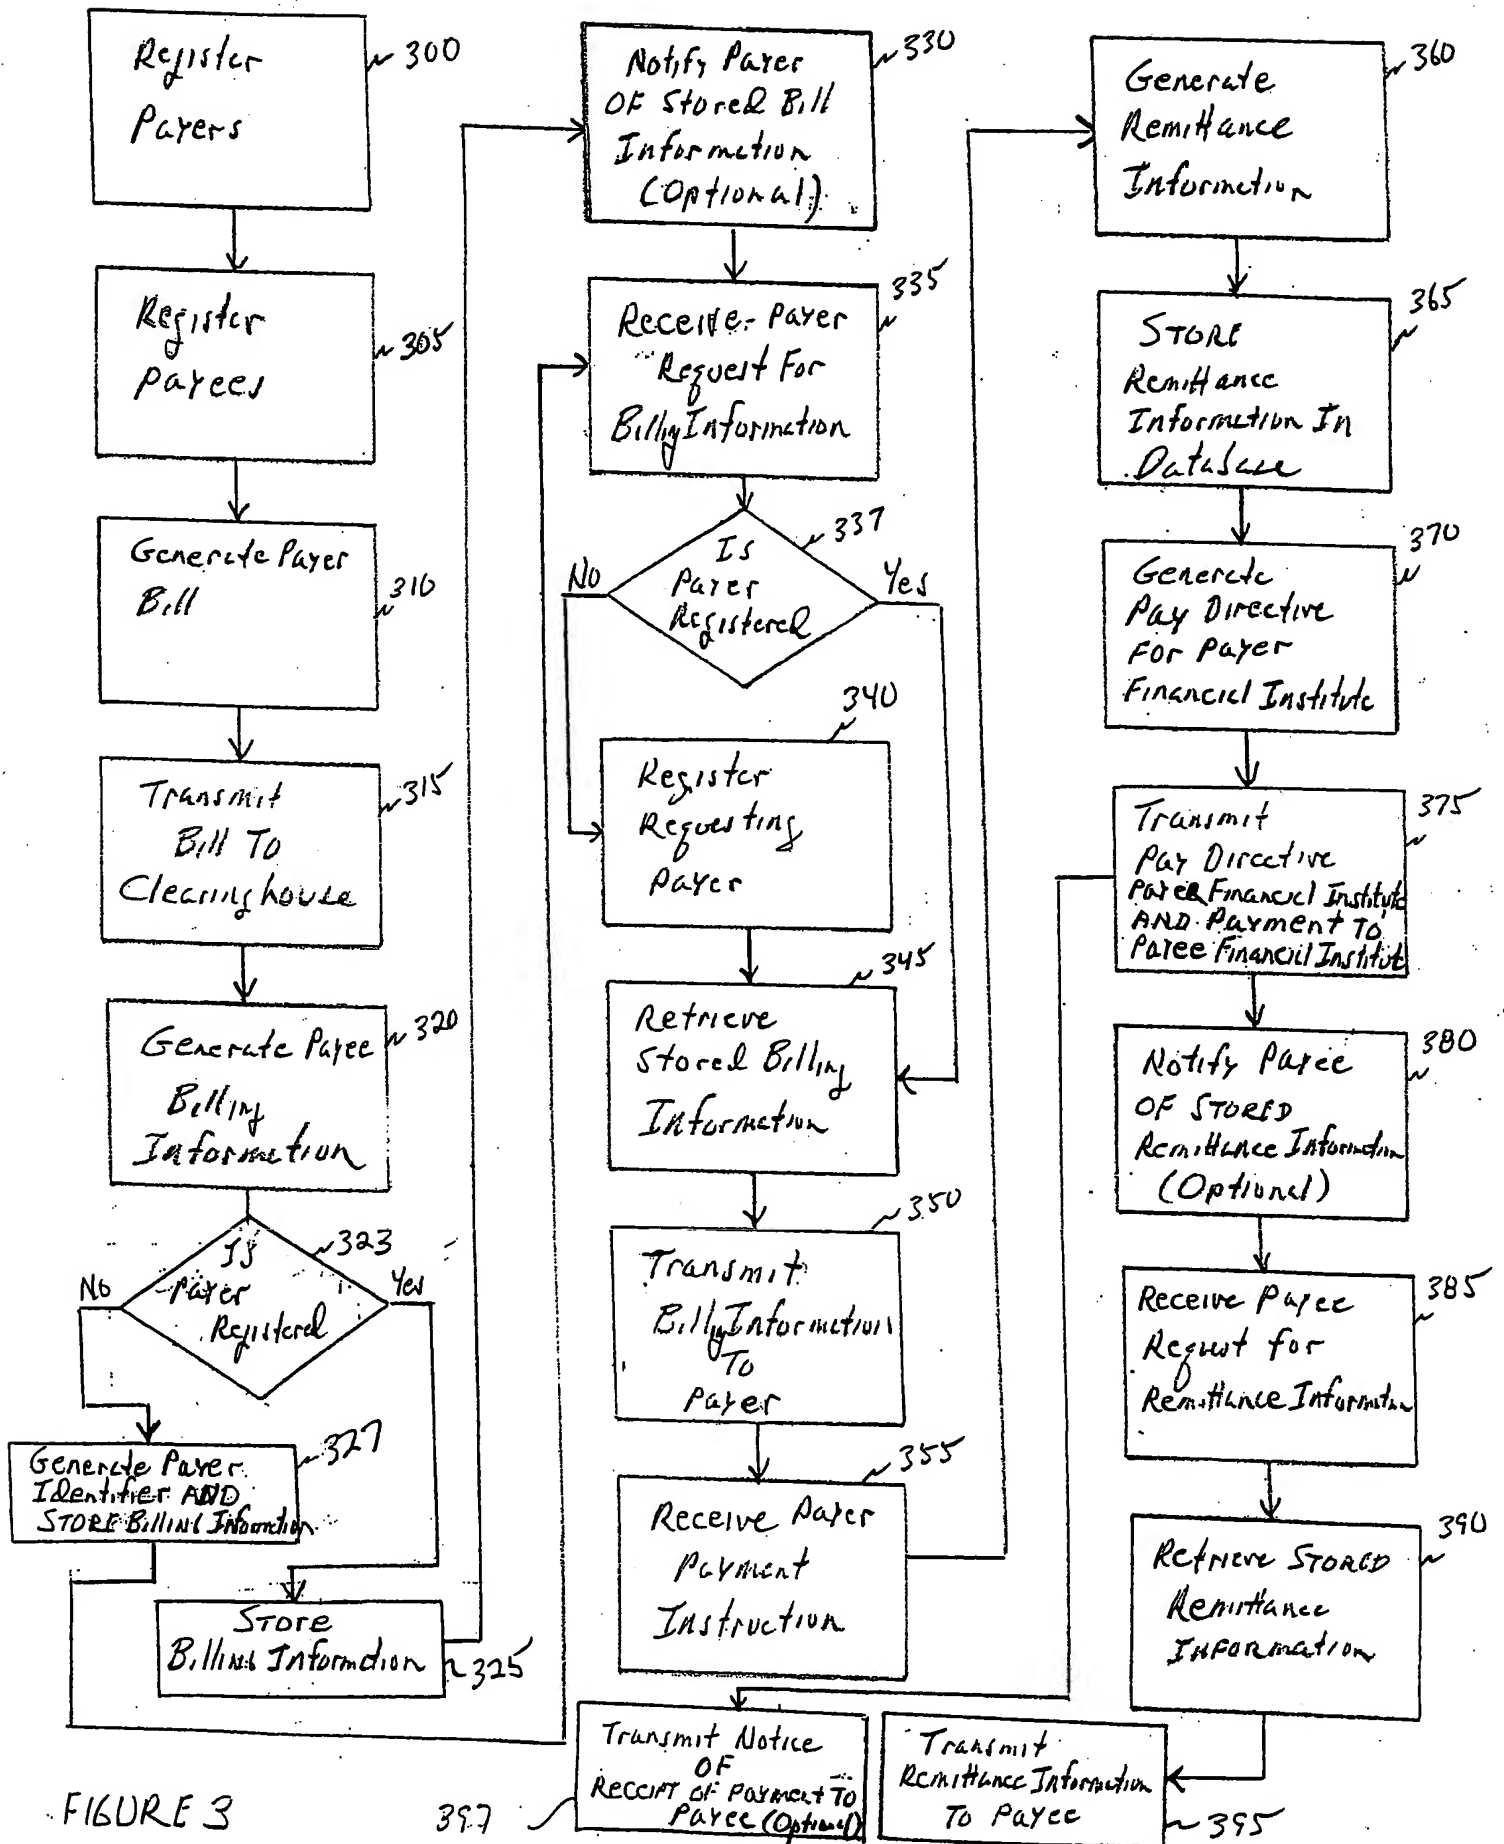 Register
Payers
300
Register
Payees
305
Generate Payer
Bill
310
Transmit
Bill To
Clearinghouse
315
Generate Payee
Billing
Information
320
Is
Payer
Registered
323
No
Yes
Generate Payer
Identifier AND
STORE Billing Information
327
Store
Billing Information
325
Notify Payer
OF Stored Bill
Information
(Optional)
330
Receive Payer
Request For
Billing Information
335
Is
Payer
Registered
337
No
Yes
340
Register
Requesting
Payer
345
Retrieve
Stored Billing
Information
350
Transmit
Billing Information
To
Payer
355
Receive Payer
Payment
Instruction
360
Generate
Remittance
Information
365
STORE
Remittance
Information In
Database
370
Generate
Pay Directive
For Payer
Financial Institute
375
Transmit
Pay Directive
Payer Financial Institute
AND Payment To
Payee Financial Institute
380
Notify Payee
OF STORED
Remittance Information
(Optional)
385
Receive Payee
Request for
Remittance Information
390
Retrieve STORED
Remittance
INFORMATION
Transmit Notice
OF
RECEIPT OF Payment To
Payee (Optional)
397
Transmit
Remittance Information
To Payee
395
FIGURE 3